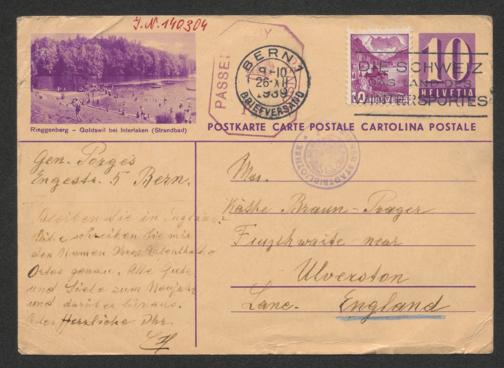 J.N. 140304
PASSED
BERN 1
9-10
26.XII
1939
BRIEFVERSAND
DIE SCHWEIZ
DAS LAND DES
WINTERSPORTES
10
HELVETIA
Ringgenberg - Goldswil bei Interlaken (Strandbad)
POSTKARTE CARTE POSTALE CARTOLINA POSTALE
STADTBIBLIOTHEK
Gen. Porges
Engestr. 5 Bern.
Bleiben Sie in England?
Bitte schreiben Sie mir
den Namen Ihres
Ortes genau. Alle Gute
und Liebe zum Neujahr
und darüber hinaus.
Herzliche Ihr
Mrs.
Käthe Braun-Prager
Finsthwaite near
Ulverston
Lanc. England